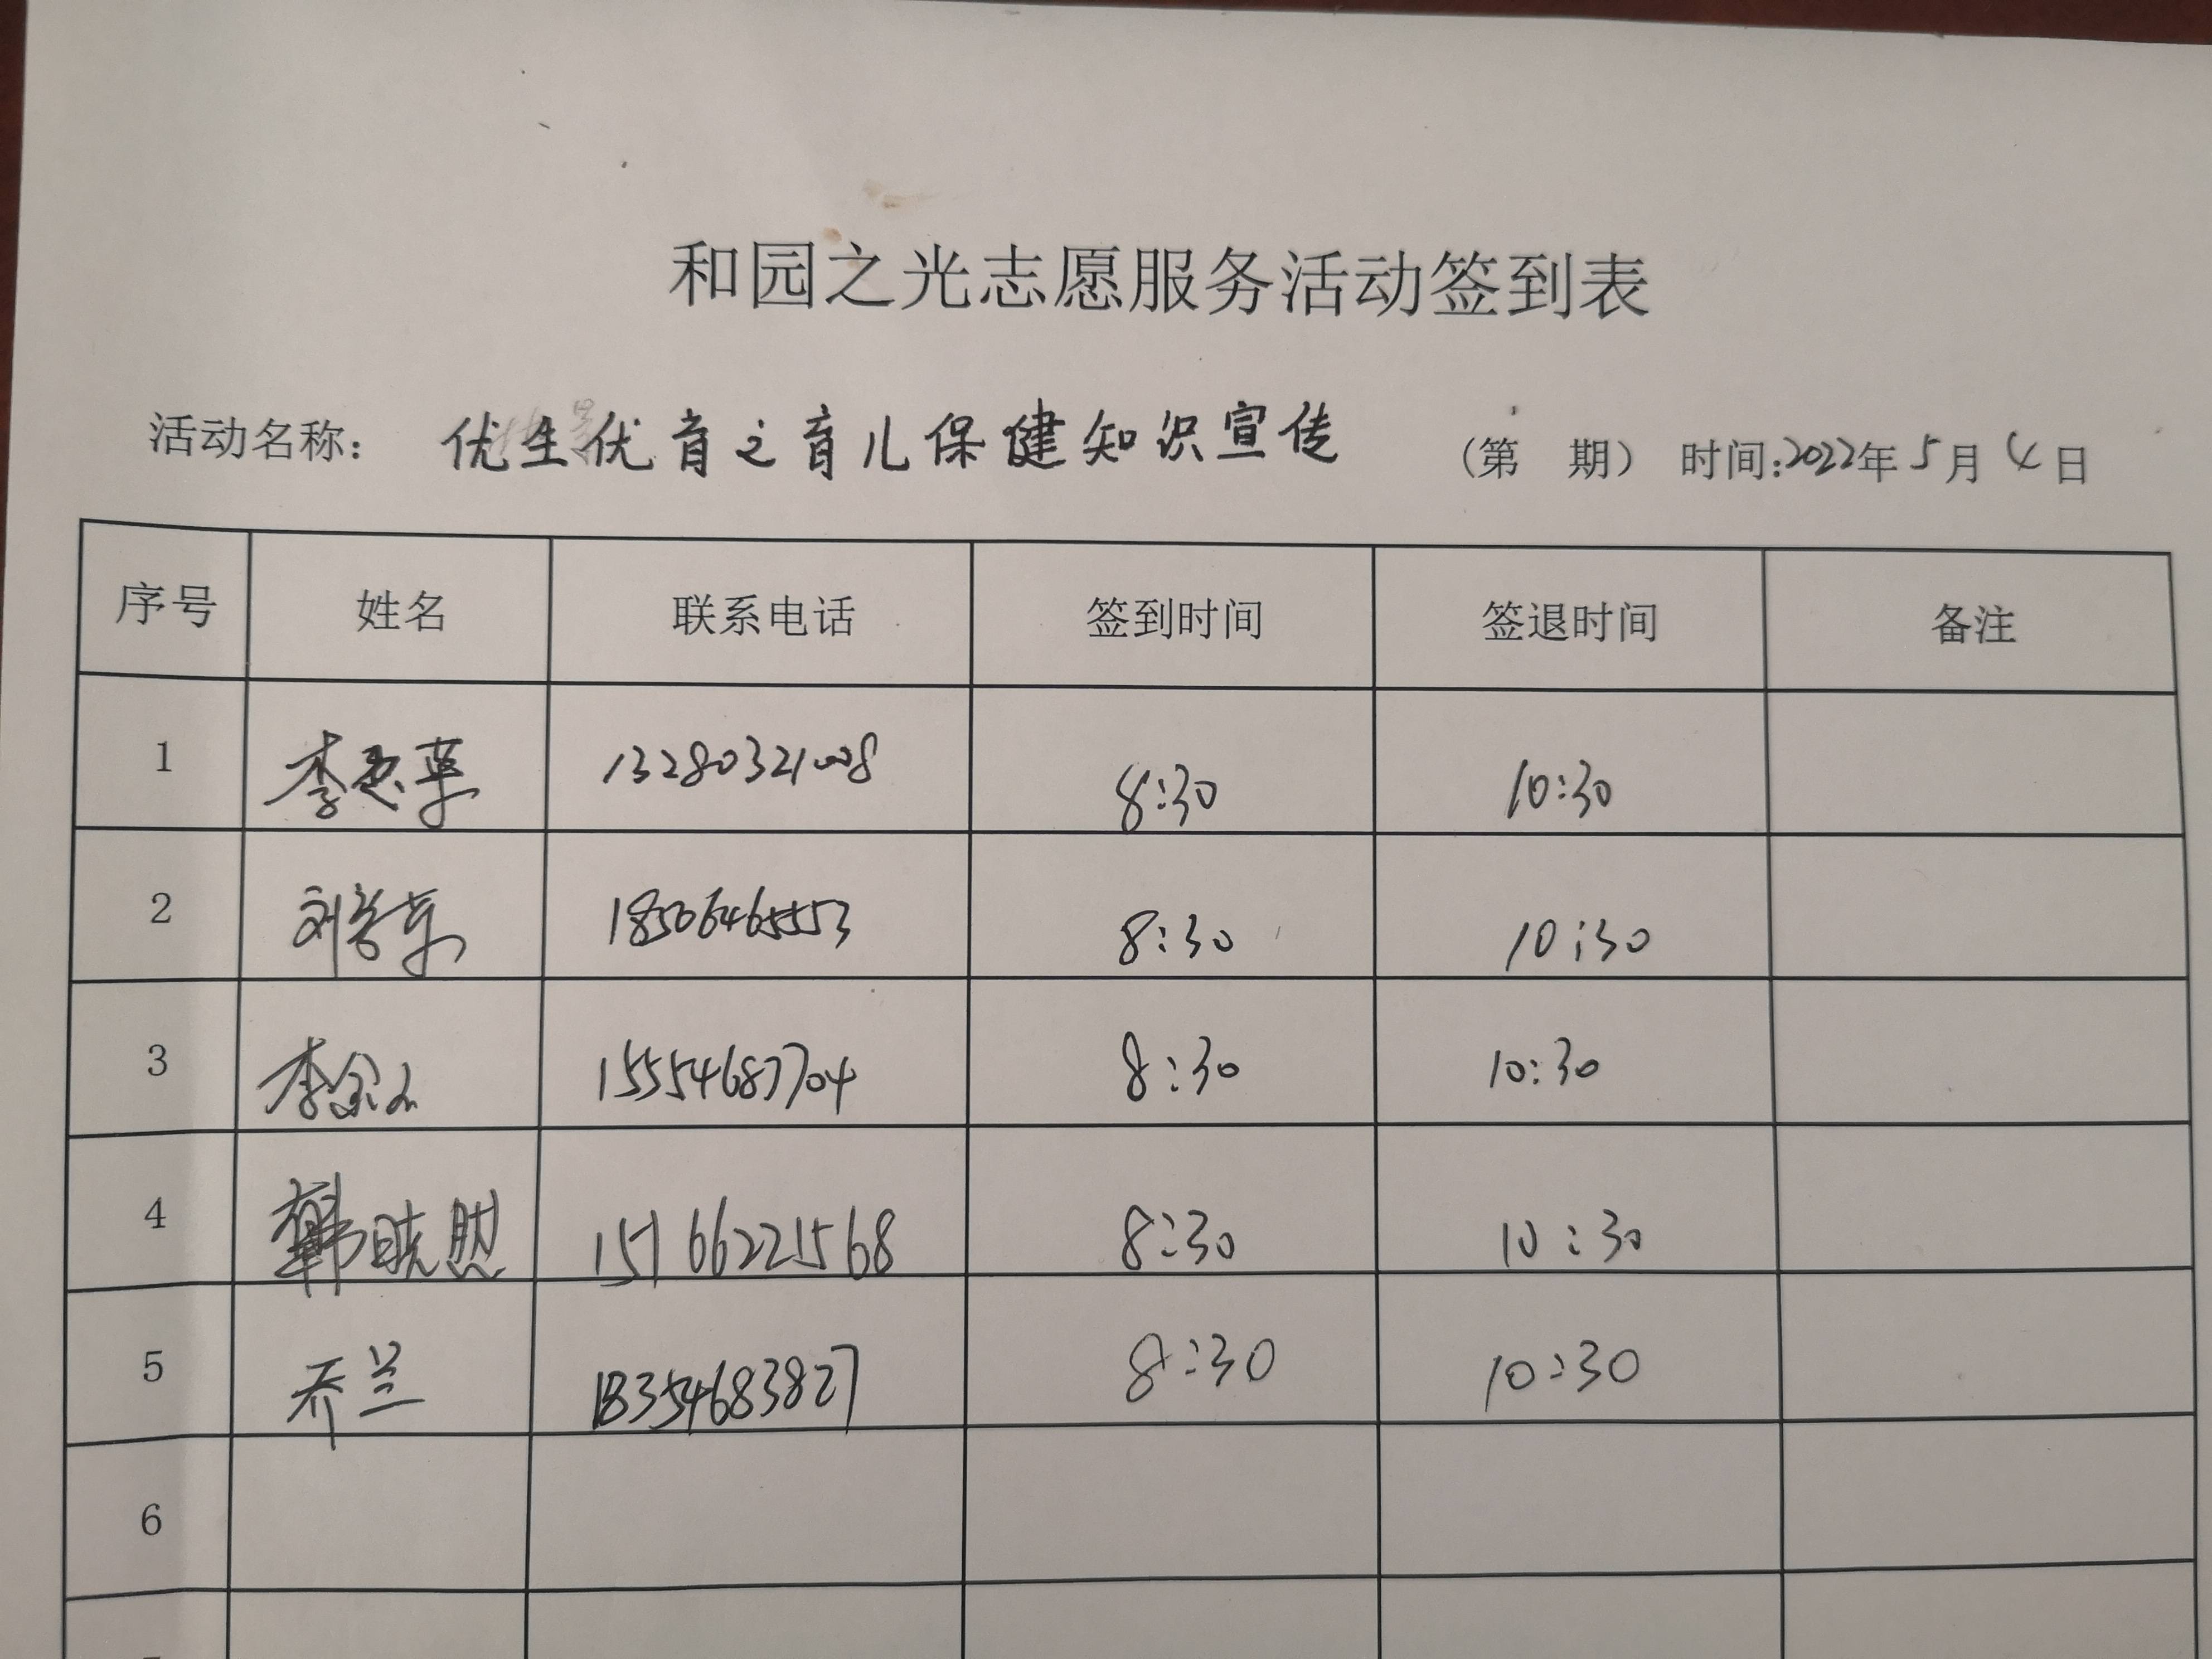 和园之光志愿服务活动签到表
活动名称： 优生优育之育儿保健知识宣传 （第 期） 时间：2022年5月4日
序号 姓名 联系电话 签到时间 签退时间 备注
1 李 13280321008 8:30 10:30
2 刘 18506465553 8:30 10:30
3 李 15554687704 8:30 10:30
4 韩晓 15166221568 8:30 10:30
5 乔兰 18354683827 8:30 10:30
6